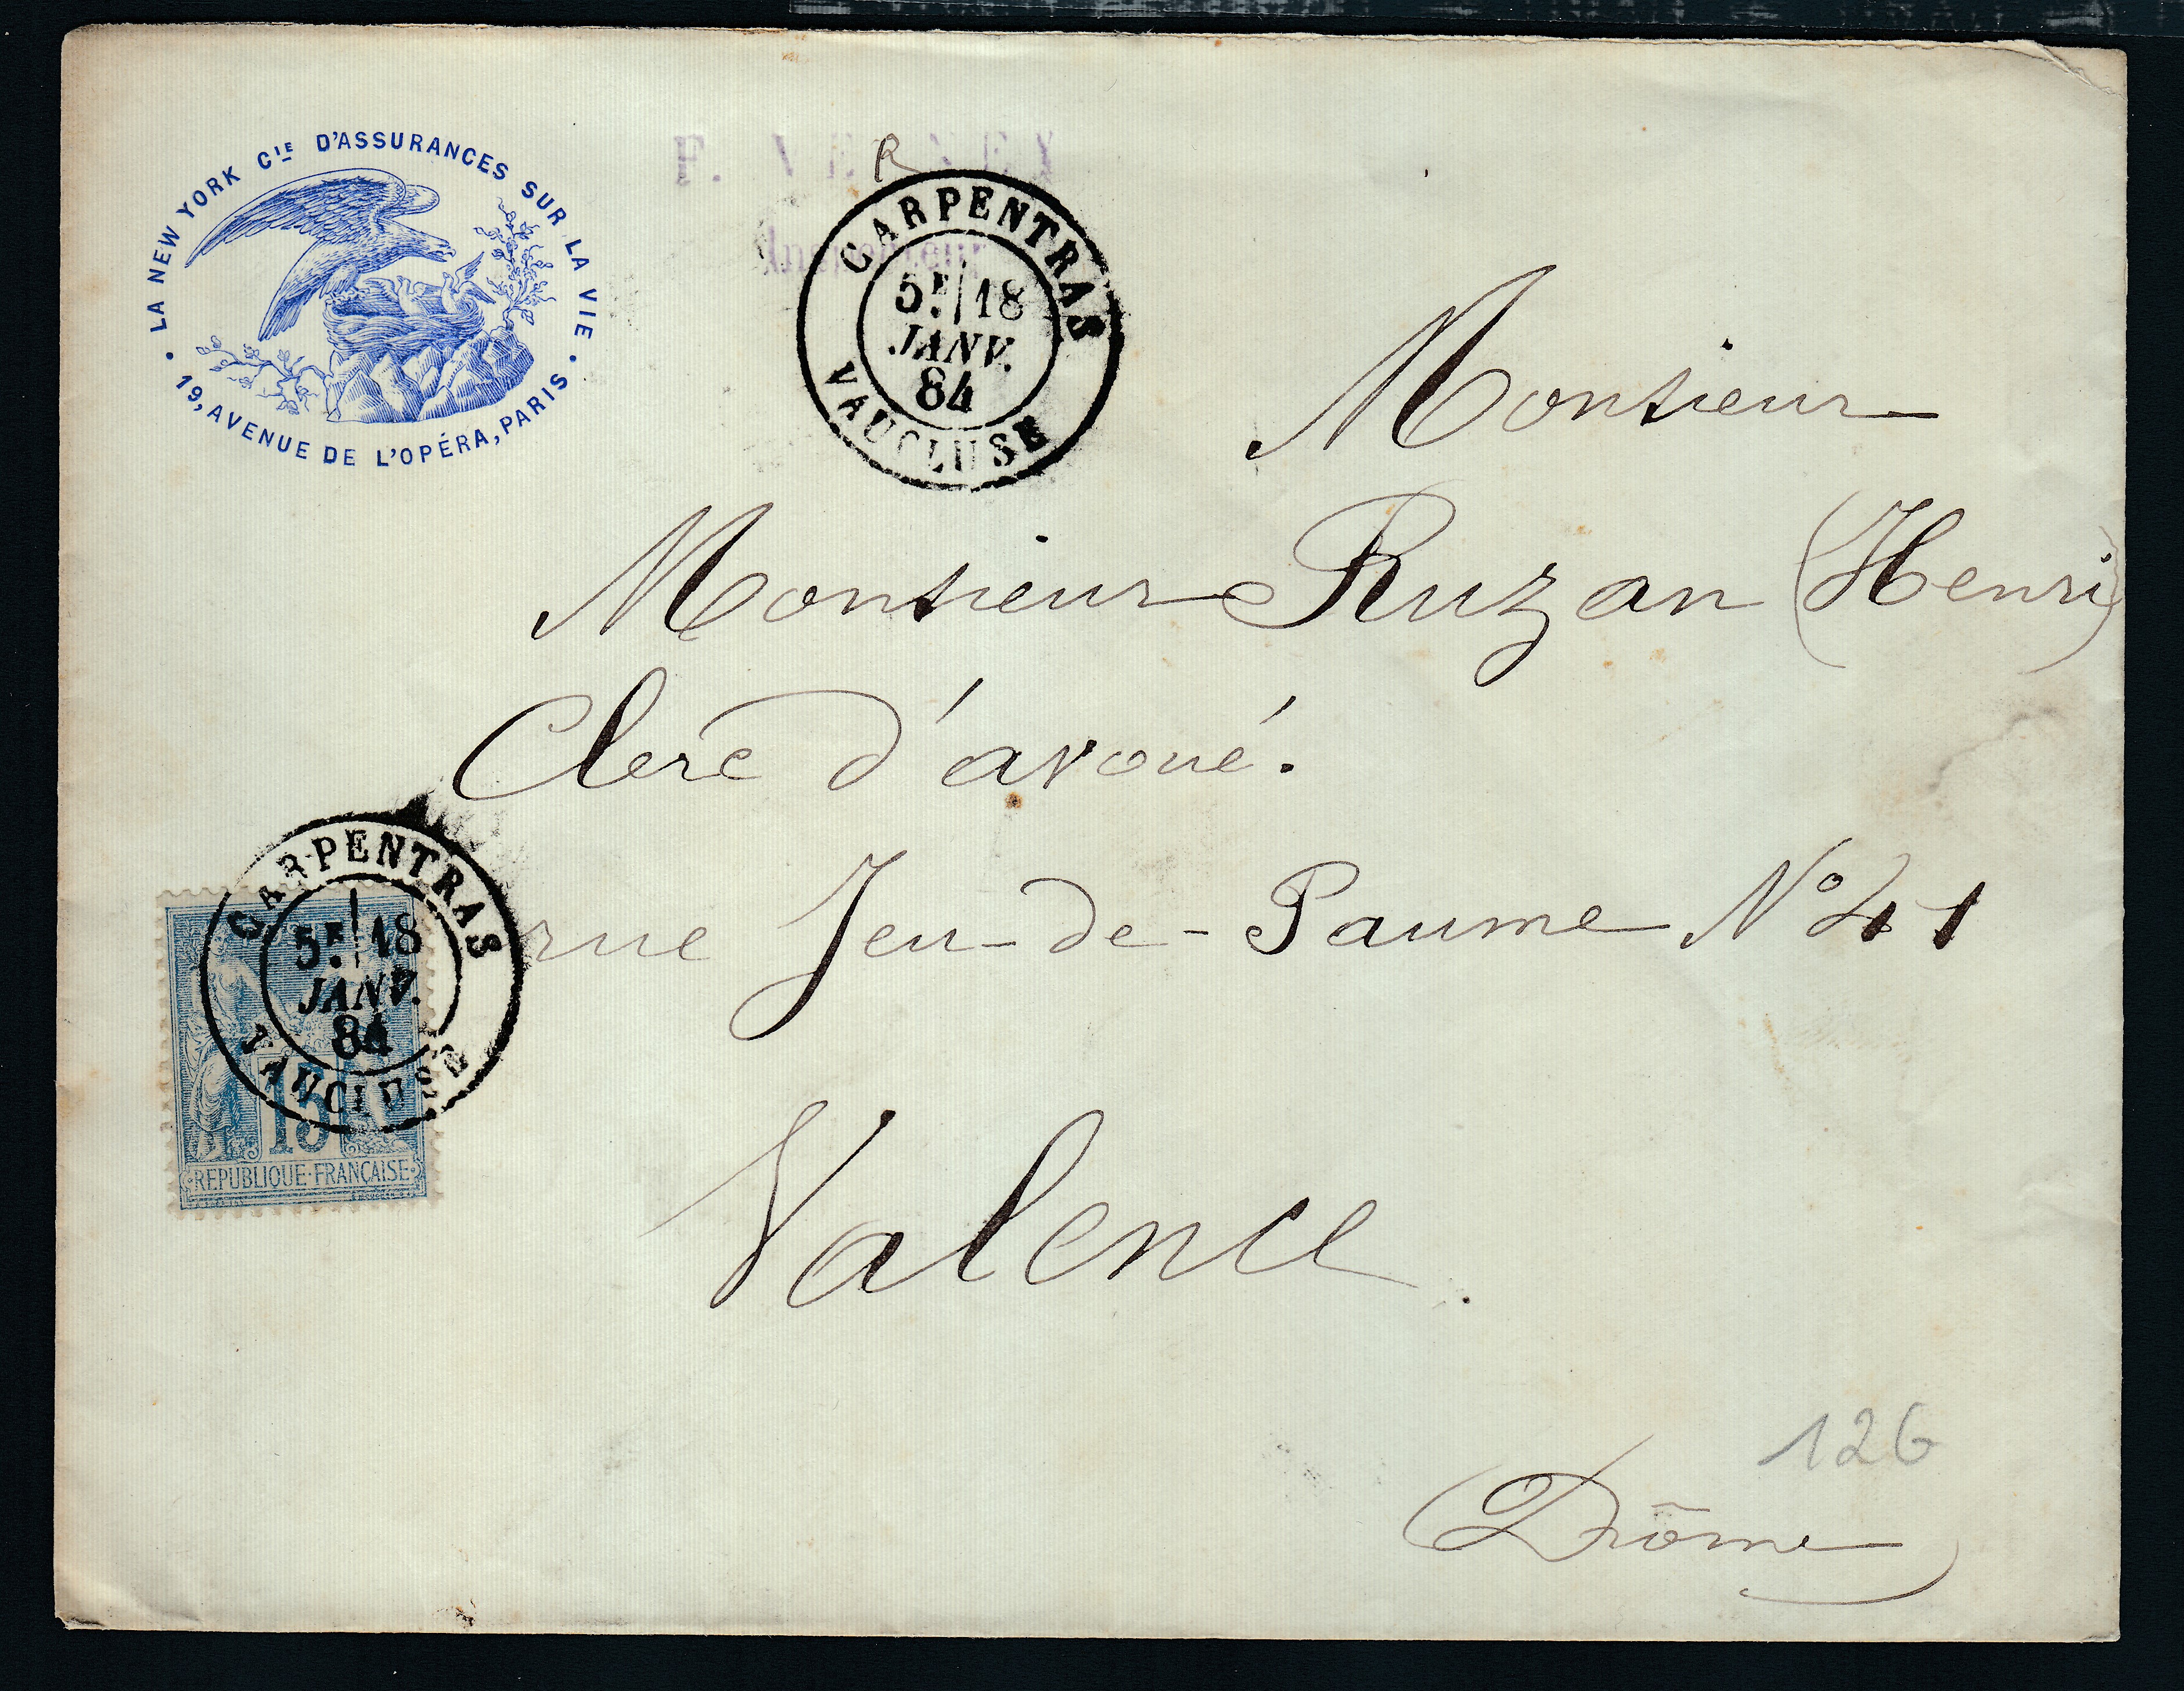 LA NEW YORK CIE D'ASSURANCES SUR LA VIE
19, AVENUE DE L'OPÉRA, PARIS
R
CARPENTRAS
5E 18
JANV.
84
VAUCLUSE
Monsieur
Monsieur Ruzan (Henri)
Clerc d'avoué.
rue Jeu-de-Paume No 41
CARPENTRAS
5E 18
JANV.
84
VAUCLUSE
15
REPUBLIQUE FRANÇAISE
Valence.
126
(Drôme)